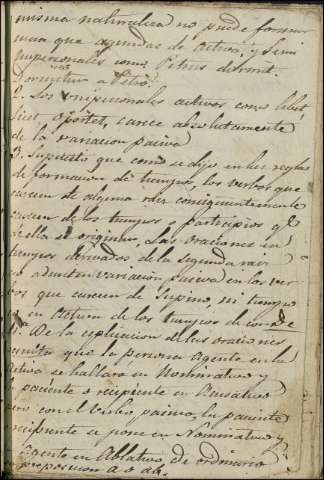 misma naturaleza no puede formar
mas que agendas de activa, y semi
impersonales como Petrus
á Petro.
2. Los unipersonales activos como libet
licet, oportet, carece absolutamente
de la variacion pasiva
3. Supuesto que como se dijo en las reglas
de formacion de tiempos, los verbos que
carecen de alguna raiz consiguientemente
carecen de los tiempos o participios q.e
de ella se originan, Las oraciones en
tiempos derivados de la segunda raiz
no admiten variacion pasiva en los ver-
bos que carecen de Supino, ni tiempo
en activa de los tiempos de
4. De la esplicacion de las oraciones
que la persona Agente en la
activa se hallara en Nominativo y
la paciente o recipiente en Acusativo
pero con el Verbo pasivo, la paciente
recipiente se pone en Nominativo y
Agente en Ablativo de ordinario
preposicion a o ab.